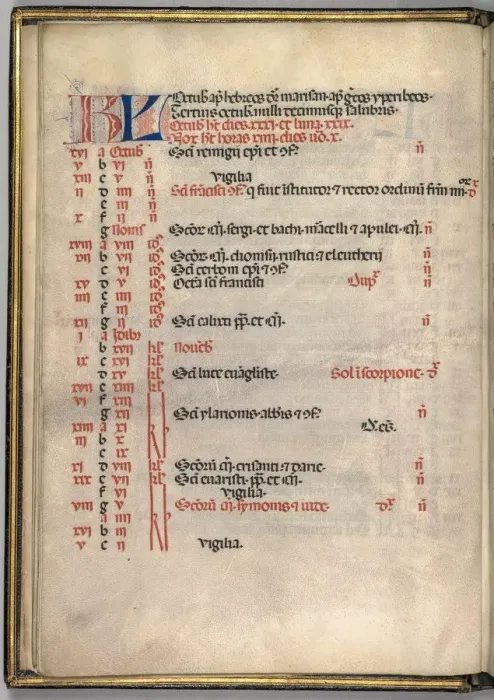 KL Octub ap hebreos dr marisan ap grcos yperibeos
Tertius octub nulli decimusq; salubris
Octub ht dies xxxi et luna xxix
Nox ht horas xiiij dies uo x
xvi a Octub Sci remigij epi et 9f. n
b vi n
xiii c v n vigilia
ii d iiii n Sci francisci 9f. q fuit istitutor & rector ordinu frm mi. d
e iii n
x f ii n
g Nonis Scor m. sergi et bachi marcelli & apulei m. n
xviii a viii id
vii b vii id Scor m. dionisii rustici & eleutherij n
c vi id Sci cerbonii epi & 9f. n
xv d v id Octa sci francisci Dup n
iiii e iiii id
f iii id
xii g ii id Sci calixti pp. et m. n
i a Idibus
b xvii kl Noueb
ix c xvi kl
d xv kl Sci luce euagliste Sol i scorpione d
xvii e xiiii kl
vi f xiii
g xii Sci ylarionis abbis & 9f. n
xiiii a xi
iii b x
c ix
xi d viii kl Scoru m. crisanti & darie n
xix e vii kl Sci euaristi pp. et m. n
f vi vigilia
viii g v Scoru m. symonis & iude d n
a iiii
xvi b iii
v c ii vigilia